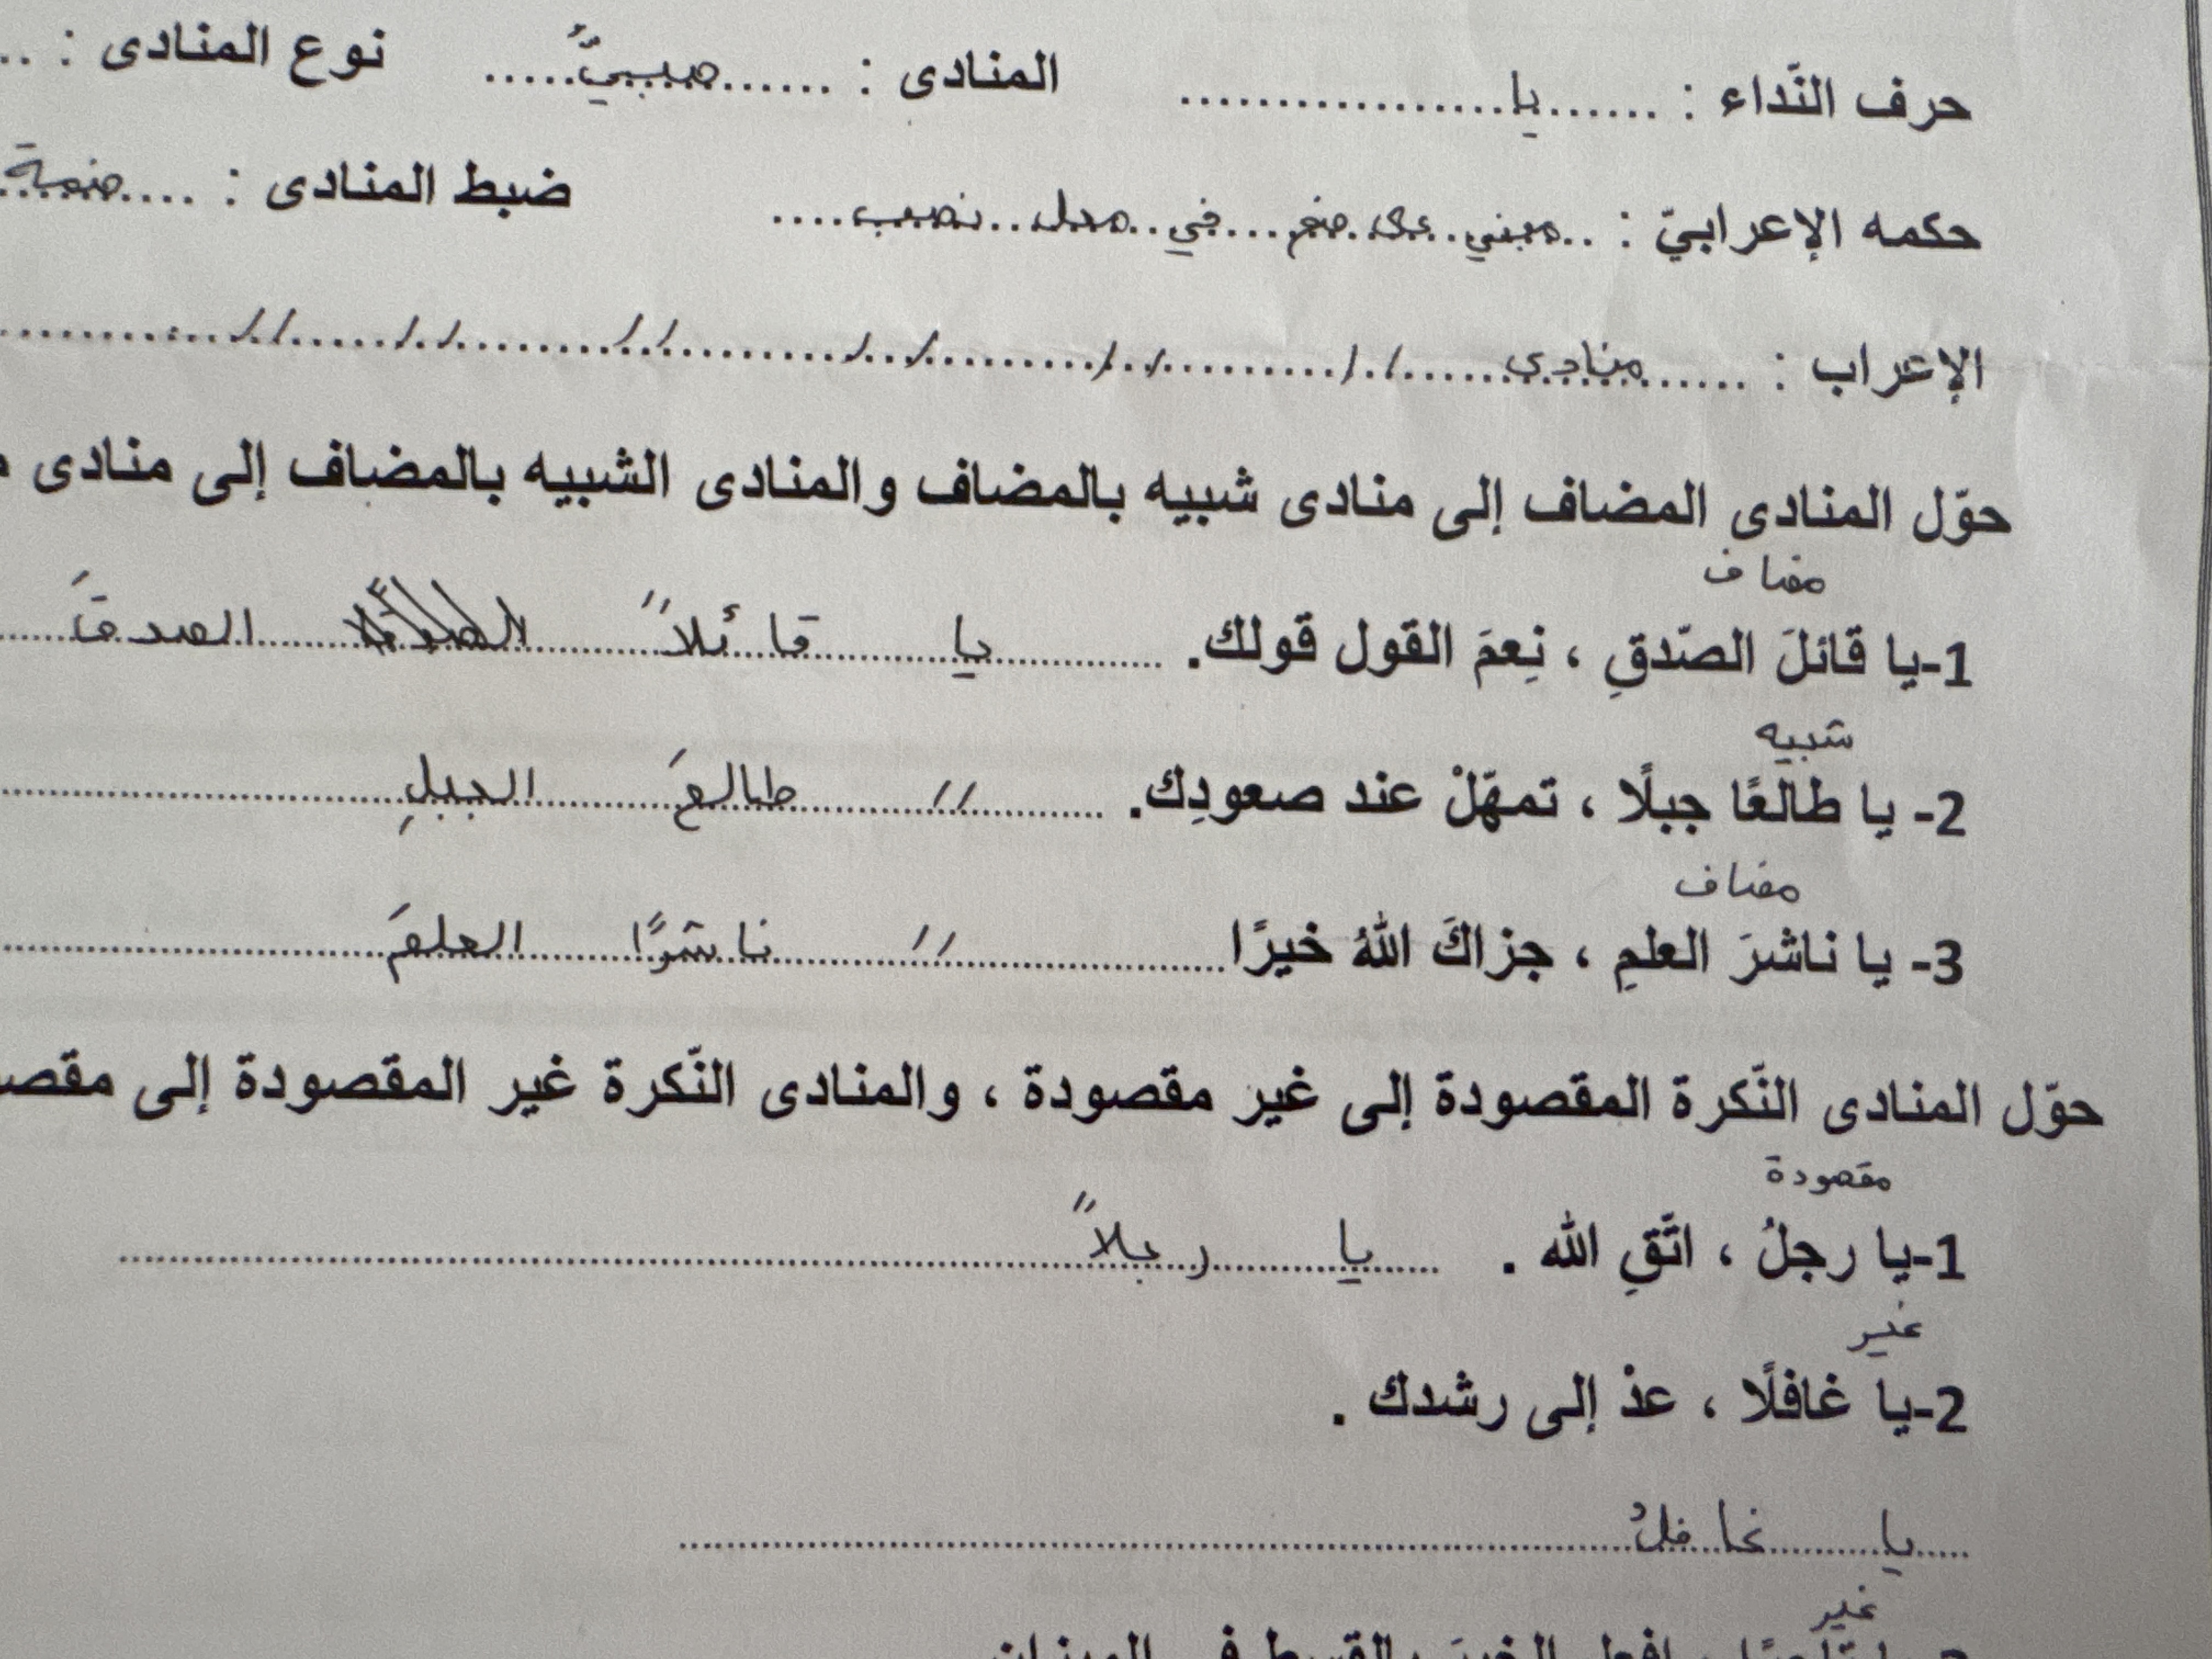 حرف النّداء : ......يا.................. المنادى : ......صبيُّ..... نوع المنادى : ..
حكمه الإعرابيّ : ..مبني..على..ضم...في..محل..نصب.... ضبط المنادى : ....ضمة..
الإعراب : ......منادى......//..........//..........//..........//..........//..........//..........
حوّل المنادى المضاف إلى منادى شبيه بالمضاف والمنادى الشبيه بالمضاف إلى منادى
مضاف
1-يا قائلَ الصّدقِ ، نِعمَ القول قولك. ..........يا........قائلاً............الصدقَ....
شبيه
2- يا طالعًا جبلًا ، تمهّلْ عند صعودِك. ........//........طالعَ........الجبلِ............
مضاف
3- يا ناشرَ العلمِ ، جزاكَ اللهُ خيرًا..............//........ناشرًا......العلمَ............
حوّل المنادى النّكرة المقصودة إلى غير مقصودة ، والمنادى النّكرة غير المقصودة إلى
مقصودة
1-يا رجلُ ، اتّقِ الله . ....يا........رجلاً............................
غير
2-يا غافلًا ، عدْ إلى رشدك .
....يا........غافلُ............................
غير